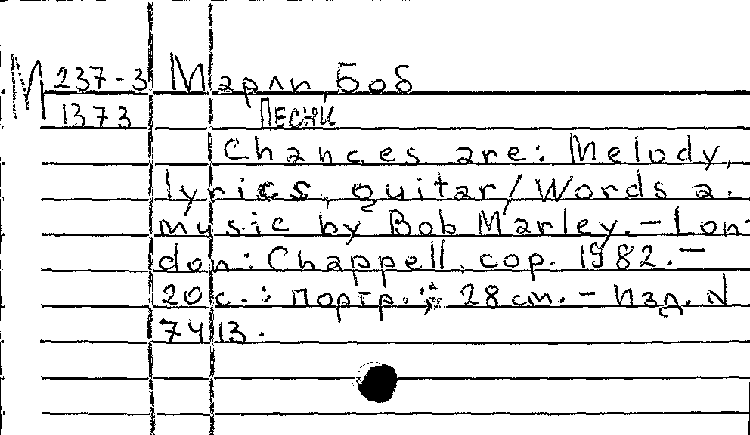 М 237-3 Марли, Боб
1373 Песни
Chances are: Melody,
lyrics, guitar/Words a.
music by Bob Marley.-Lon-
don: Chappell, cop. 1982.-
20 с.: портр.; 28 см. - Изд. N
7413.